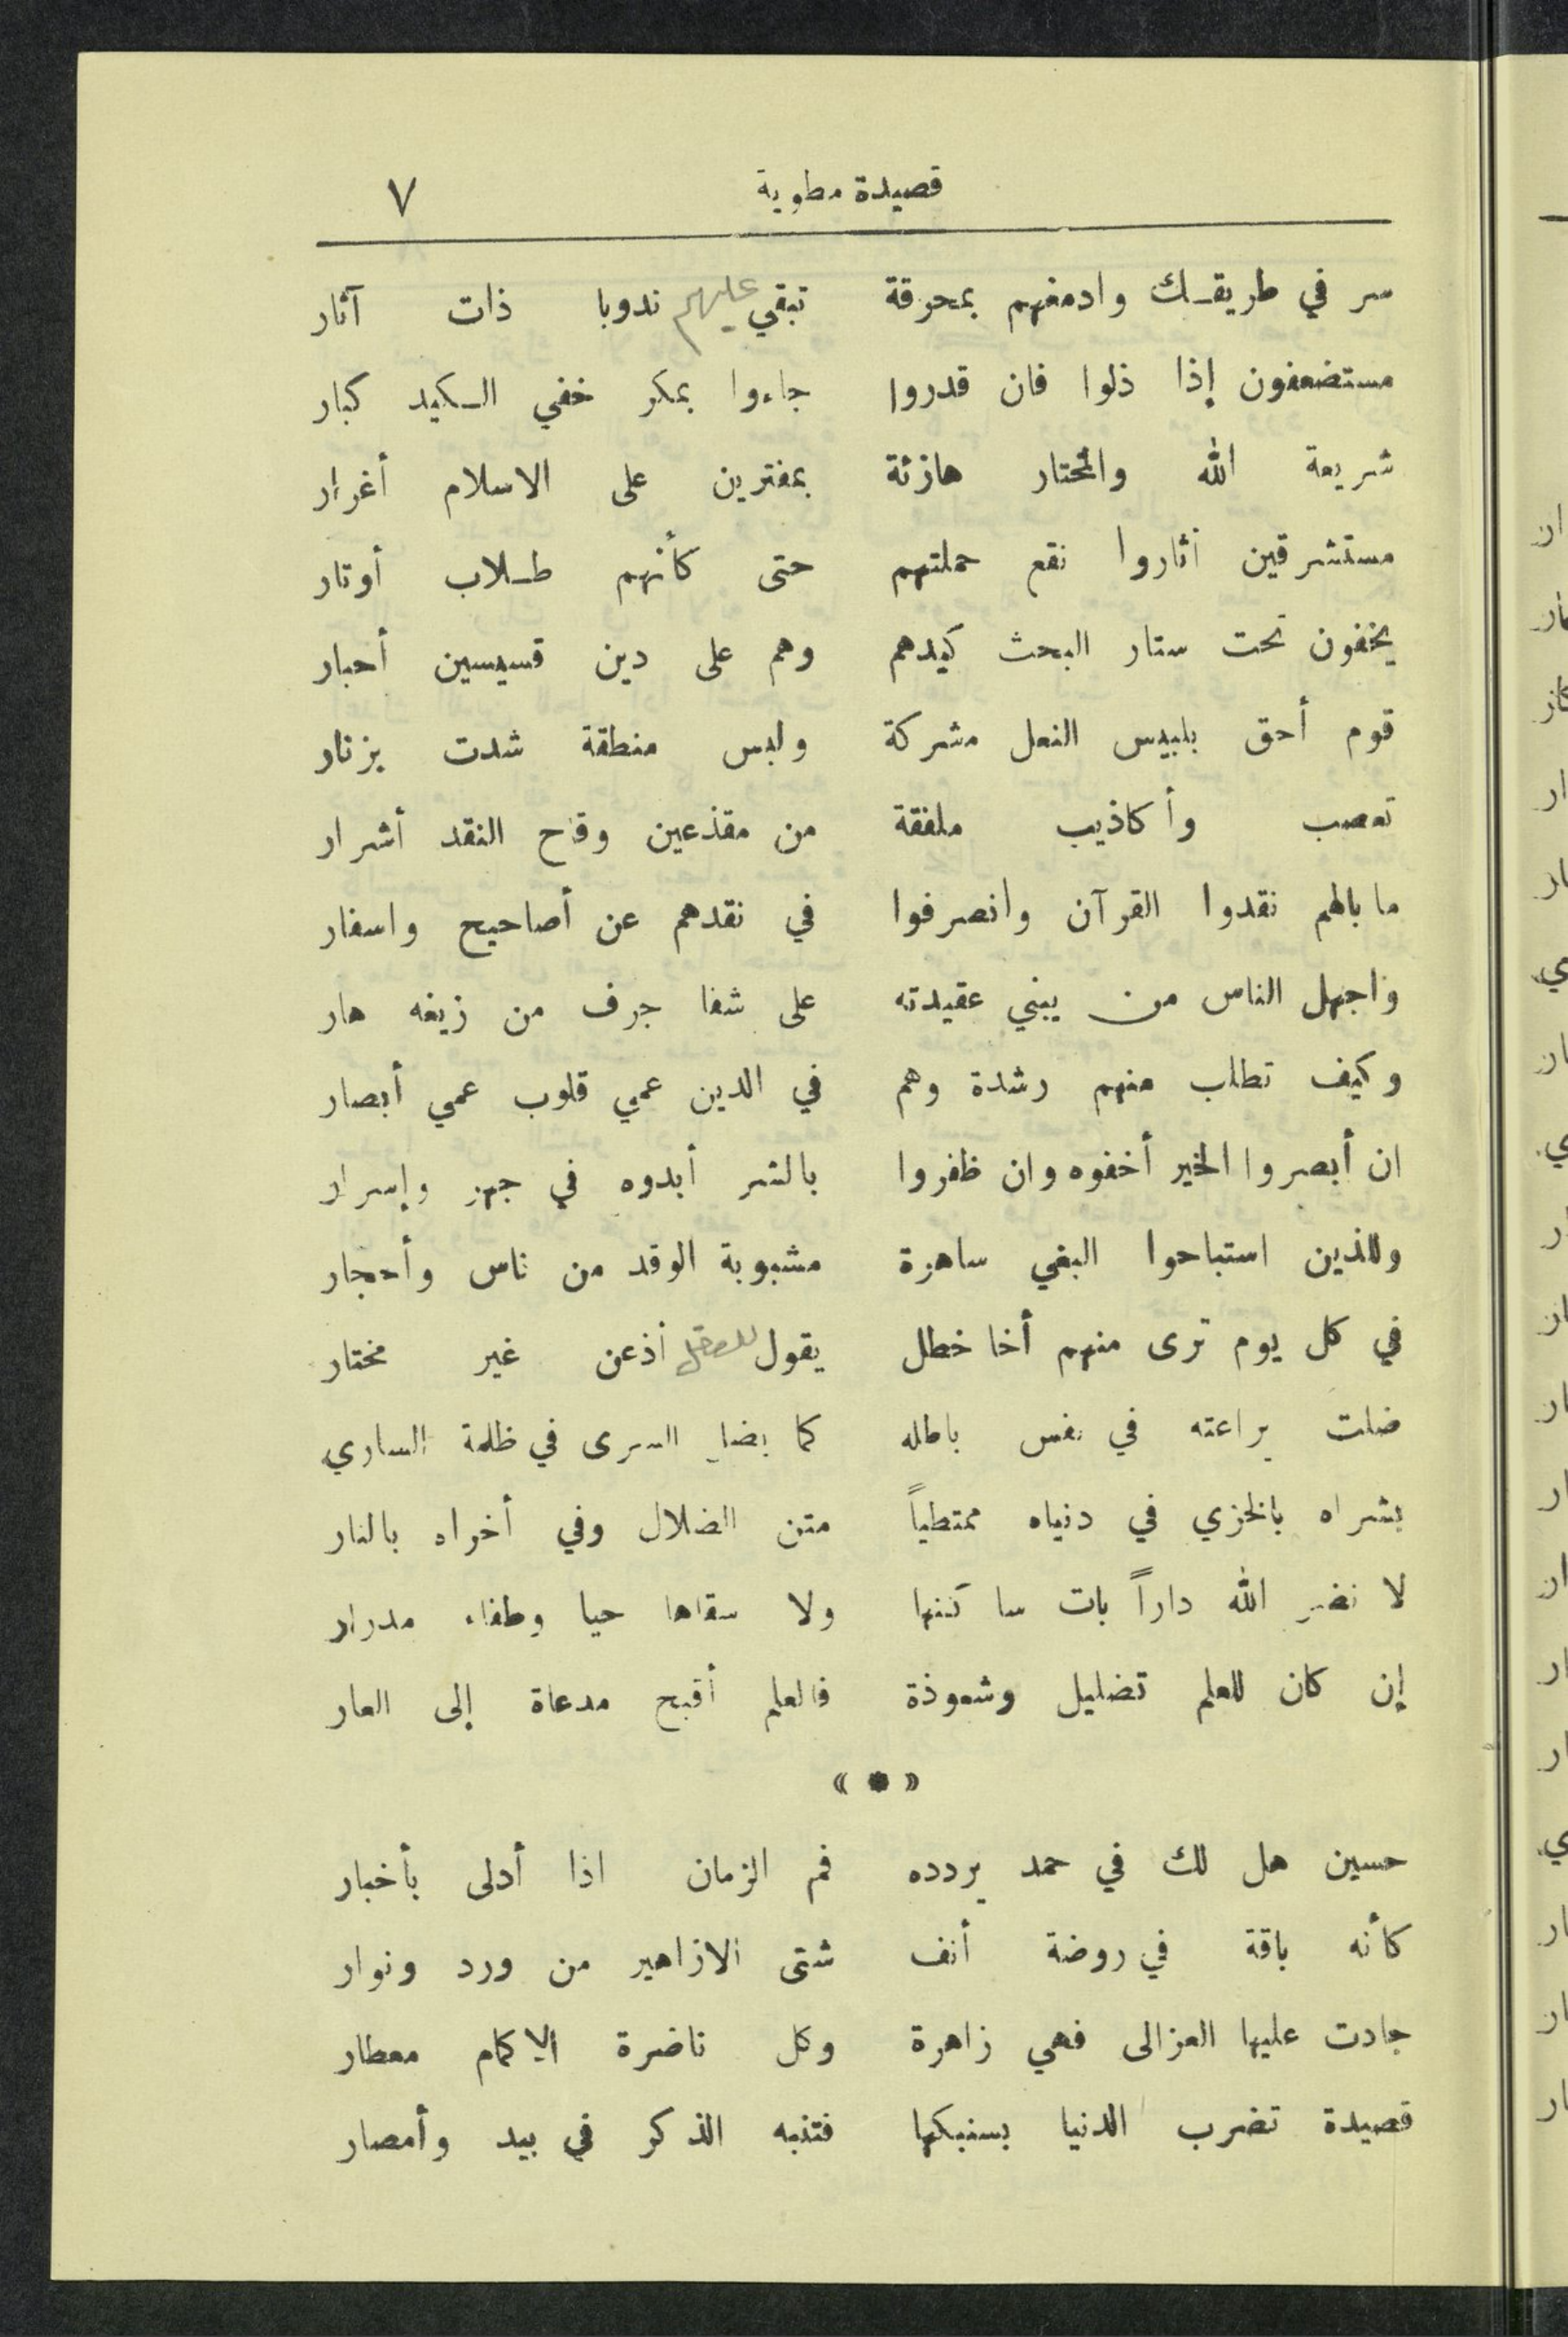 قصيدة مطوية ٧
سر في طريقك وادمغهم بمحرقة تبقي عليهم ندوبا ذات آثار
مستضعفون إذا ذلوا فان قدروا جاءوا بمكر خفي الكيد كبار
شريعة الله والمختار هازئة بمفترين على الاسلام أغرار
مستشرقين أثاروا نقع حملتهم حتى كأنهم طلاب أوتار
يخفون تحت ستار البحث كيدهم وهم على دين قسيسين أحبار
قوم أحق بلبيس النعل مشركة ولبس منطقة شدت بزنار
تعصب وأكاذيب ملفقة من مقذعين وقاح النقد أشرار
ما بالهم نقدوا القرآن وانصرفوا في نقدهم عن أصاحيح واسفار
واجهل الناس من يبني عقيدته على شفا جرف من زيغه هار
وكيف تطلب منهم رشدة وهم في الدين عمي قلوب عمي أبصار
ان أبصروا الخير أخفوه وان ظفروا بالشر أبدوه في جهر وإسرار
وللذين استباحوا البغي ساهرة مشبوبة الوقد من ناس وأحجار
في كل يوم ترى منهم أخا خطل يقول للعقل أذعن غير مختار
ضلت يراعته في نفس باطله كما يضل السرى في ظلمة الساري
بشراه بالخزي في دنياه ممتطياً متن الضلال وفي أخراه بالنار
لا نضر الله داراً بات ساكنها ولا سقاها حيا وطفاء مدرار
إن كان للعلم تضليل وشعوذة فالعلم أقبح مدعاة إلى العار
« * »
حسين هل لك في حمد يردده فم الزمان اذا أدلى بأخبار
كأنه باقة في روضة أنف شتى الازاهير من ورد ونوار
جادت عليها العزالى فهي زاهرة وكل ناضرة الاكمام معطار
قصيدة تضرب الدنيا بسنبكها فتنبه الذكر في بيد وأمصار